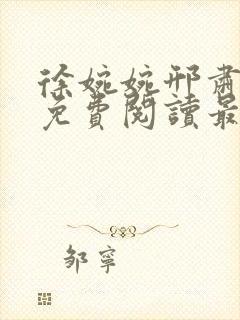 徐婉婉邢肅
免費閱讀最
邹寧